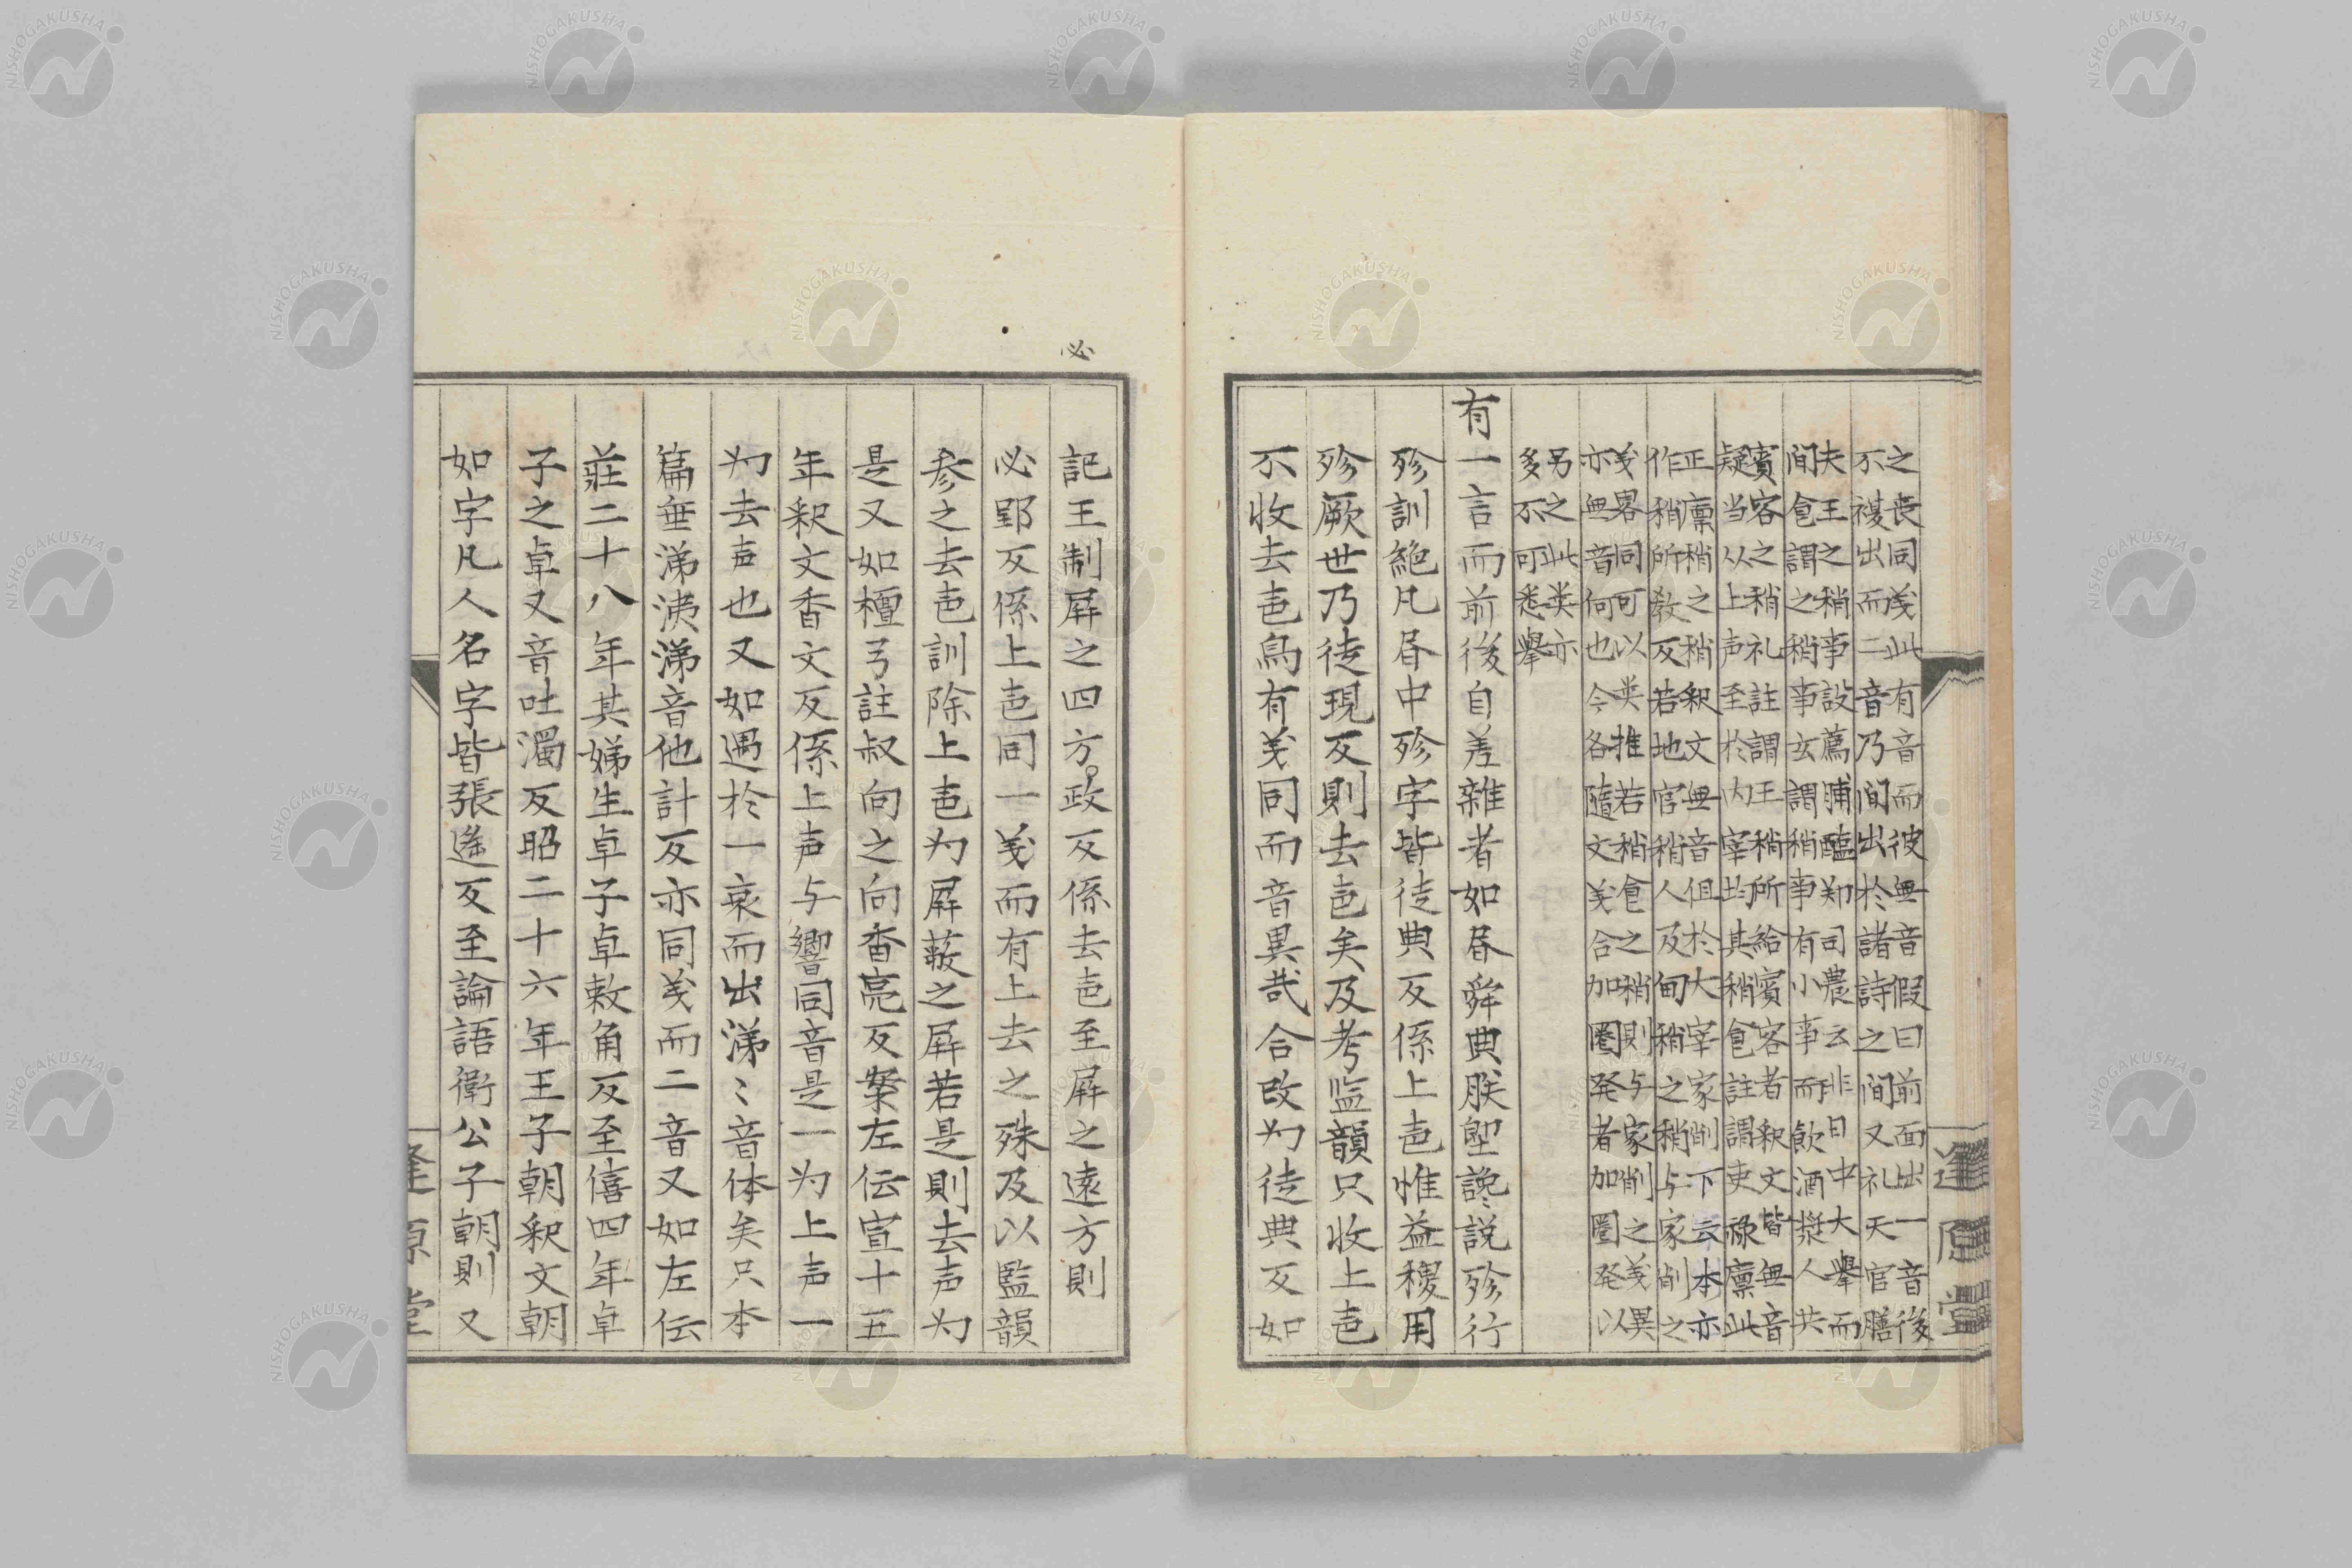 之喪同义此有音而彼無音假曰前面出一音後
不複出而二音乃間出於諸詩之間又礼天官膳
夫王之稍事設薦脯醢鄭司農云非日中大舉而
間食謂之稍事玄謂稍事有小事而飲酒漿人共
賓客之稍礼註謂王稍所給賓客者釈文皆無音
疑当以上声至於内宰均其稍食註謂吏祿廩此
正廩稍之稍釈文無音但於大宰家削下云本亦
作稍所教反若地官稍人及甸稍之稍与家削之
义畧同可以类推若稍食之稍則与家削之义異
亦無音何也今各隨文义合加圏発者加圏発以
另之此类亦
多不可悉舉
有一言而前後自差雜者如昬舜典朕堲讒説殄行
殄訓絶凡昬中殄字皆徒典反係上㐌惟益稷用
殄厥世乃徒現反則去㐌矣及考监韻只收上㐌
不收去㐌烏有义同而音異哉合改为徒典反如
必
記王制屏之四方政反係去㐌至屏之遠方則
必郢反係上㐌同一义而有上去之殊及以監韻
参之去㐌訓除上㐌为屏蔽之屏若是則去声为
是又如檀弓註叔向之向香亮反案左伝宣十五
年釈文香文反係上声与響同音是一为上声一
为去声也又如遇於一哀而出涕〻音体矣只本
篇垂涕洟涕音他計反亦同义而二音又如左伝
莊二十八年其娣生卓子卓敕角反至僖四年卓
子之卓又音吐濁反昭二十六年王子朝釈文朝
如字凡人名字皆張遙反至論語衛公子朝則又
逢原堂
逢原堂
NISHOGAKUSHA